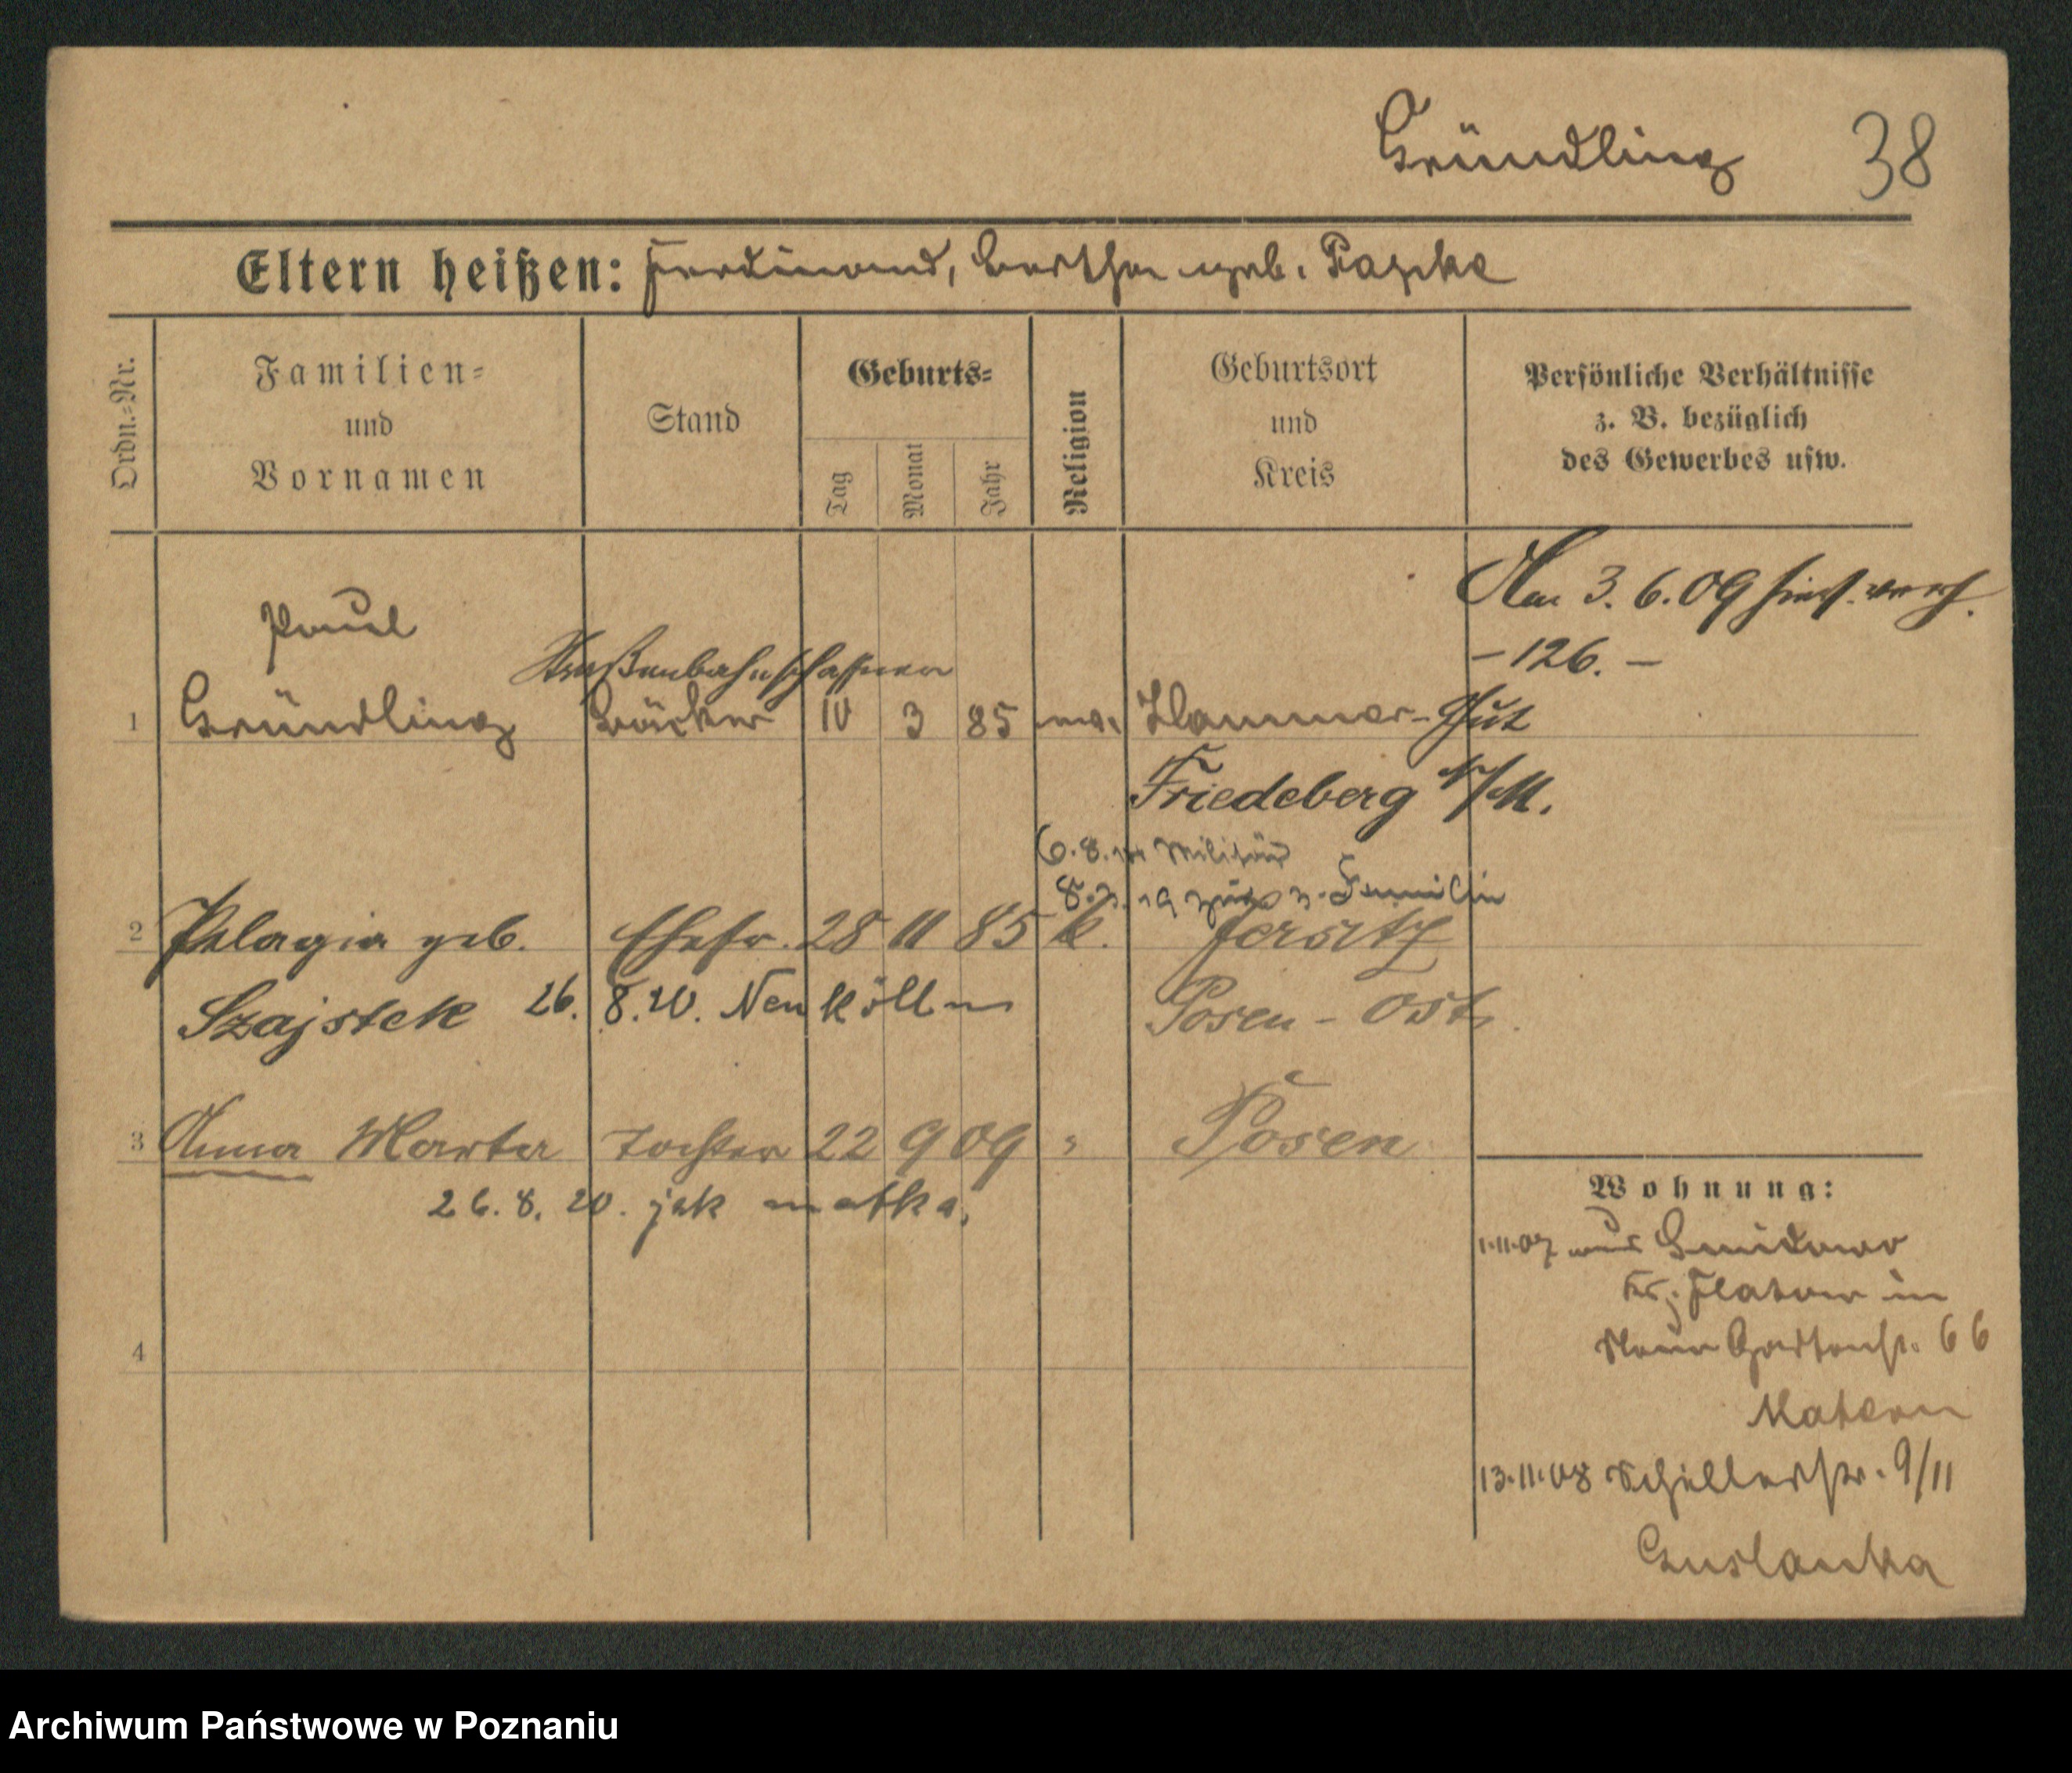 Gründling 38
Eltern heißen: Ferdinand, Bertha geb. Papke
Ordn.=Nr.
Familien=
und
Vornamen
Stand
Geburts=
Tag
Monat
Jahr
Religion
Geburtsort
und
Kreis
Persönliche Verhältnisse
z. B. bezüglich
des Gewerbes usw.
Am 3. 6. 09 hies. verh.
– 126. –
Paul
Straßenbahnschaffner
1 Gründling Bäcker 10 3 85 ev. Hammer-Gut
Friedeberg N/M.
6. 8. Militär
8. 19 zur. z. Familie
2 Pelagia geb. Ehefr. 28 11 85 k. Jersitz
Szajstek 26. 8. 20. Neukölln Posen - Ost.
3 Anna Marta Tochter 22 9 09 " Posen
26. 8. 20. jak matka.
4
Wohnung:
1.11.07 aus
Kr. Flatow in
Neue Gartenstr. 66
Matern
13.11.08 Schillerstr. 9/11
Archiwum Państwowe w Poznaniu